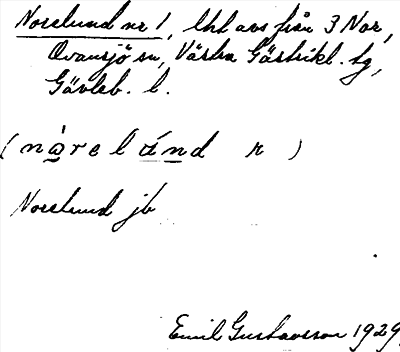 Norelund nr 1, lht avs från 3 Nor,
Ovansjö sn, Västra Gästrikl. tg,
Gävleb. l.
(nàrelánd r)
Norelund jb
Emil Gustavsson 1929.